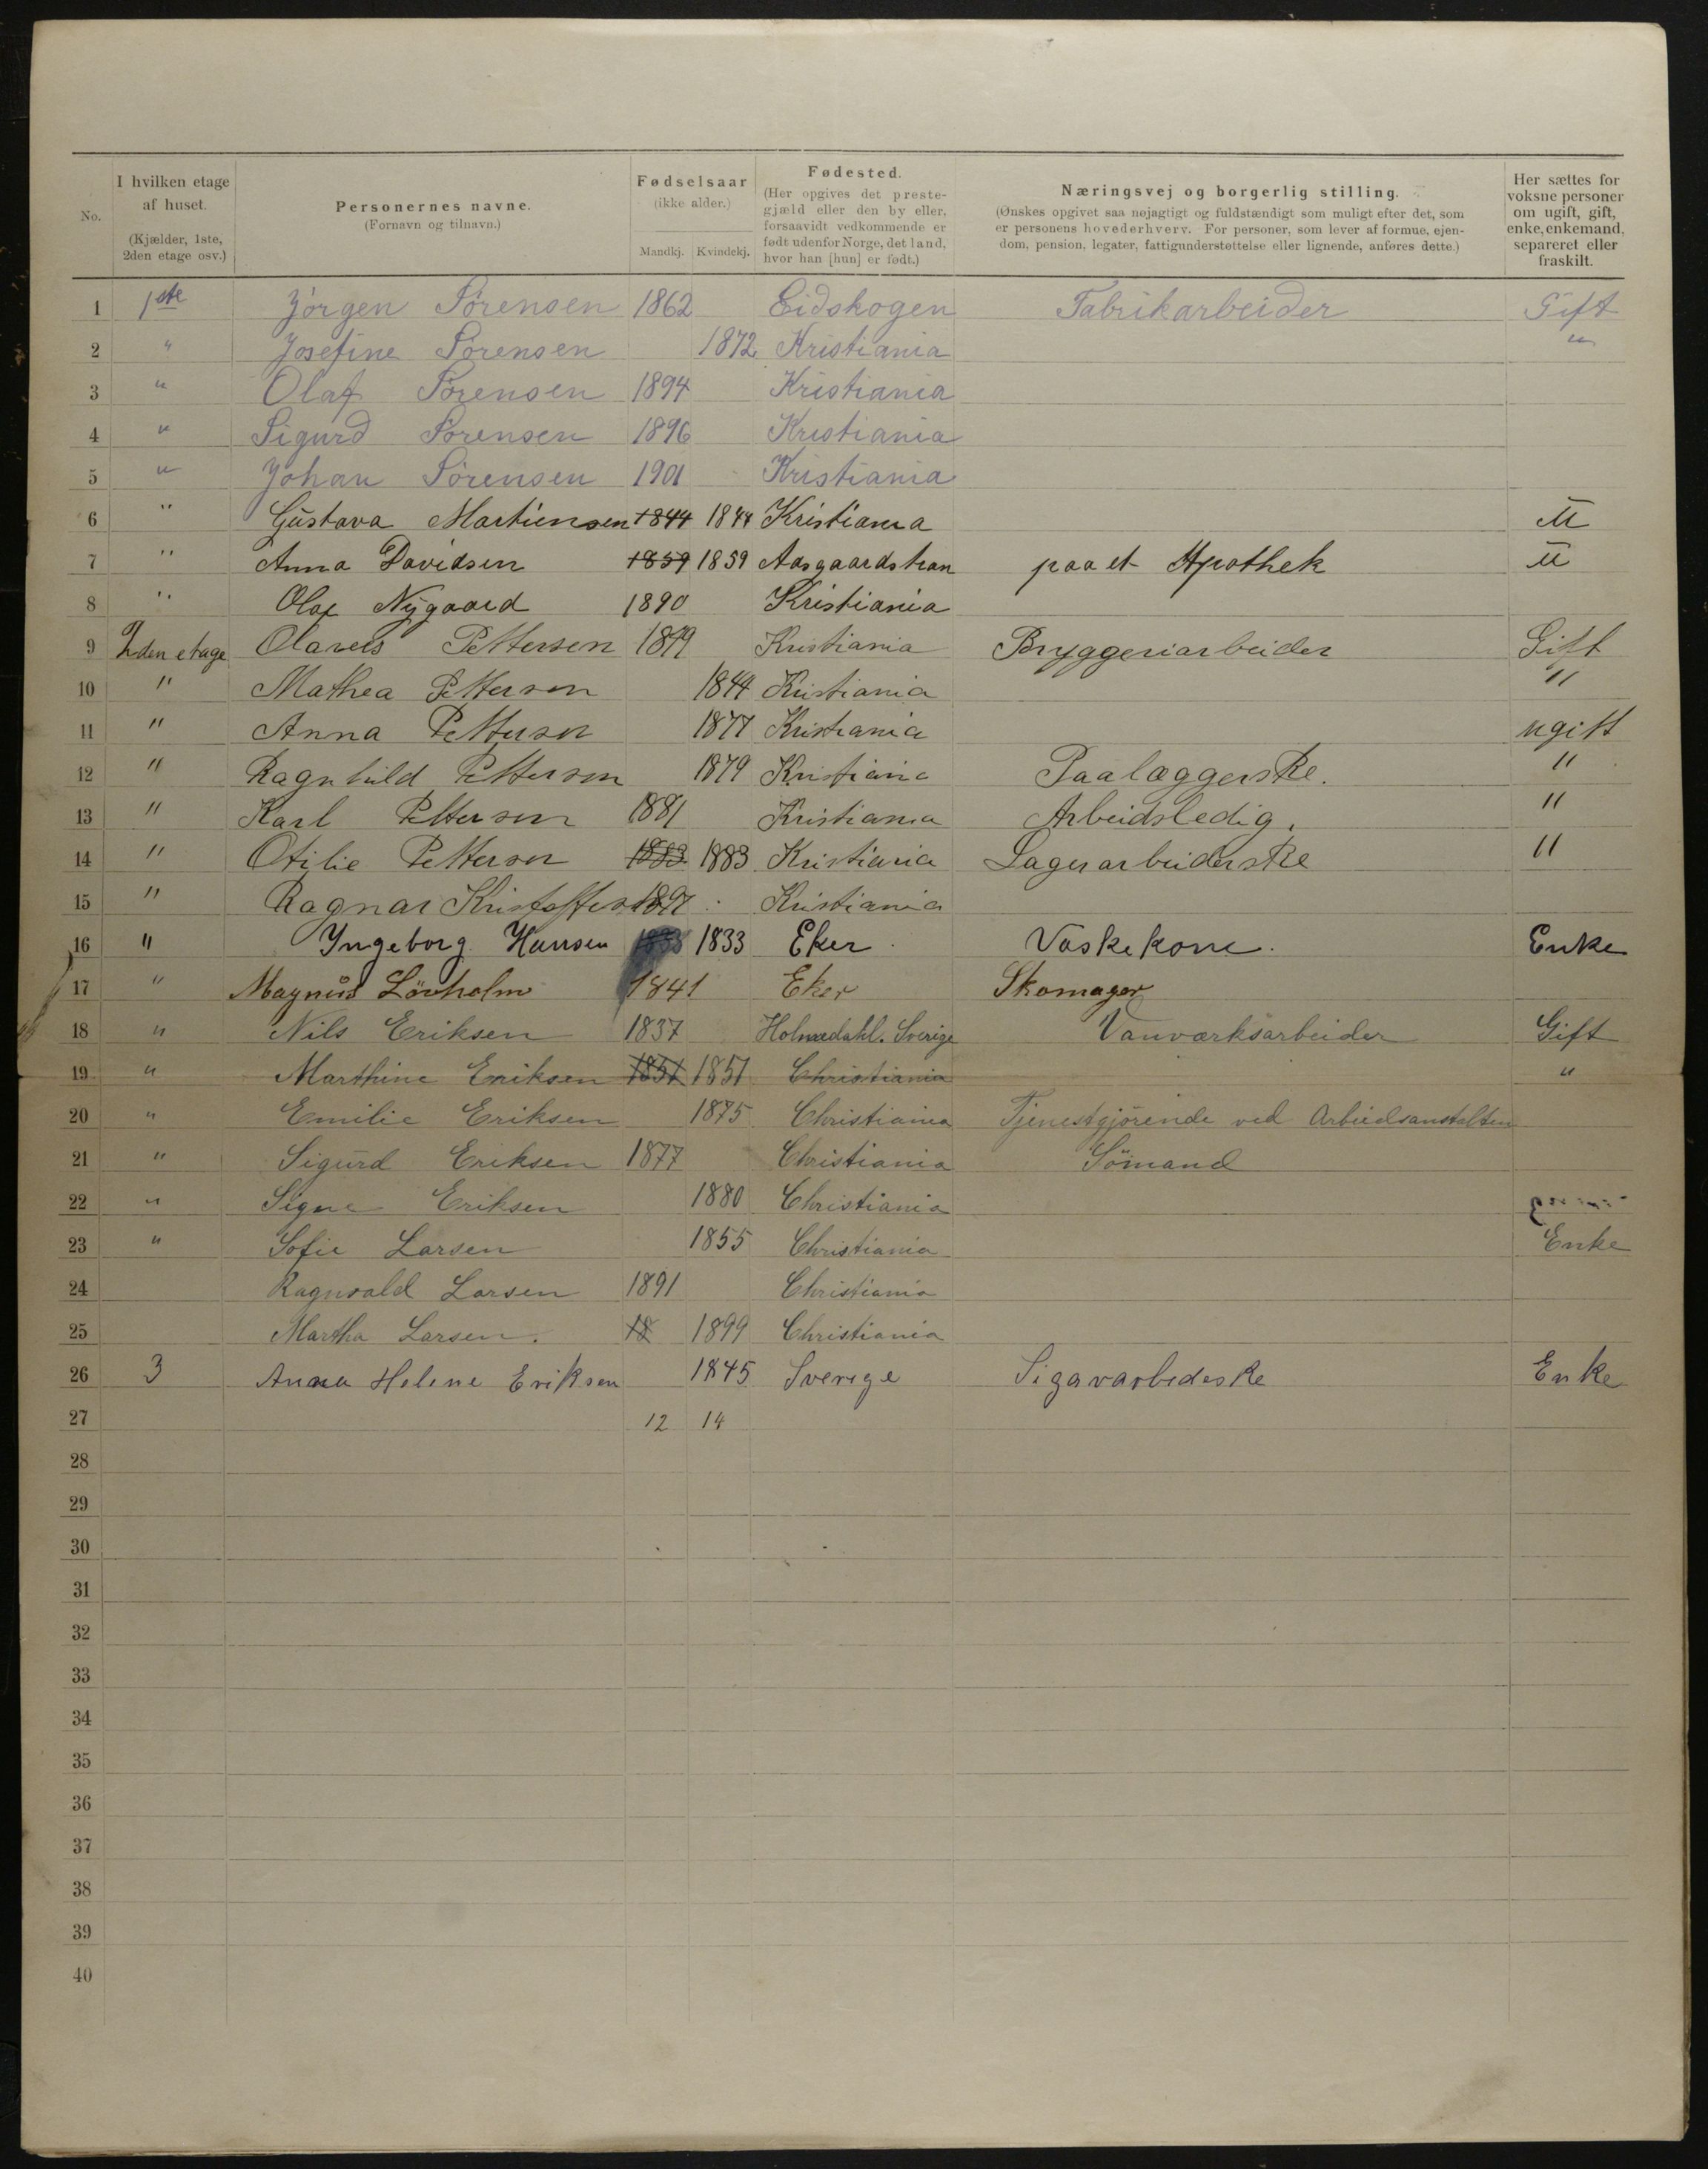 No.
I hvilken etage af huset. (Kjælder, 1ste, 2den etage osv.)
Personernes navne. (Fornavn og tilnavn.)
Fødselsaar (ikke alder.) Mandkj. Kvindekj.
Fødested. (Her opgives det prestegjæld eller den by eller, forsaavidt vedkommende er født udenfor Norge, det land, hvor han [hun] er født.)
Næringsvej og borgerlig stilling. (Ønskes opgivet saa nøjagtigt og fuldstændigt som muligt efter det, som er personens hovederhverv. For personer, som lever af formue, ejendom, pension, legater, fattigunderstøttelse eller lignende, anføres dette.)
Her sættes for voksne personer om ugift, gift, enke, enkemand, separeret eller fraskilt.
1 1ste Jörgen Sörensen 1862 Eidskogen Fabrikarbeider Gift
2 " Josefine Sörensen 1872 Kristiania "
3 " Olaf Sörensen 1894 Kristiania
4 " Sigurd Sörensen 1896 Kristiania
5 " Johan Sörensen 1901 Kristiania
6 " Gustava Martinsen 1844 1844 Kristiania U
7 " Anna Davidsen 1859 1859 Aasgaardstran paa et Apothek U
8 " Olaf Nygaard 1890 Kristiania
9 2den etage Olaves Pettersen Kristiania Bryggeriarbeider Gift
10 " Mathea Pettersen 1844 Kristiania "
11 " Anna Pettersen 1877 Kristiania ugift
12 " Ragnhild Pettersen 1879 Kristiania Paalæggerske. "
13 " Karl Pettersen 1881 Kristiania Arbeidsledig. "
14 " Otilie Pettersen 1883 1883 Kristiania Lagerarbeiderske "
15 " Ragnar Kristoffersen 1897 Kristiania
16 " Yngeborg Hansen 1833 1833 Eker Vaskekone. Enke
17 " Magnus Lövholm 1841 Eker Skomager
18 " Nils Eriksen 1837 Holmedahl. Sverige Vanværksarbeider Gift
19 " Marthine Eriksen 1851 1851 Christiania "
20 " Emilie Eriksen 1875 Christiania Tjenestgjörende ved Arbeidsanstalten
21 " Sigurd Eriksen 1877 Christiania Sömand
22 " Signe Eriksen 1880 Christiania
23 " Sofie Larsen 1855 Christiania Enke
24 Ragnvald Larsen 1891 Christiania
25 Martha Larsen. 18 1899 Christiania
26 3 Anna Helene Eriksen 1845 Sverige Sigavarbedeske Enke
27 12 14
28
29
30
31
32
33
34
35
36
37
38
39
40